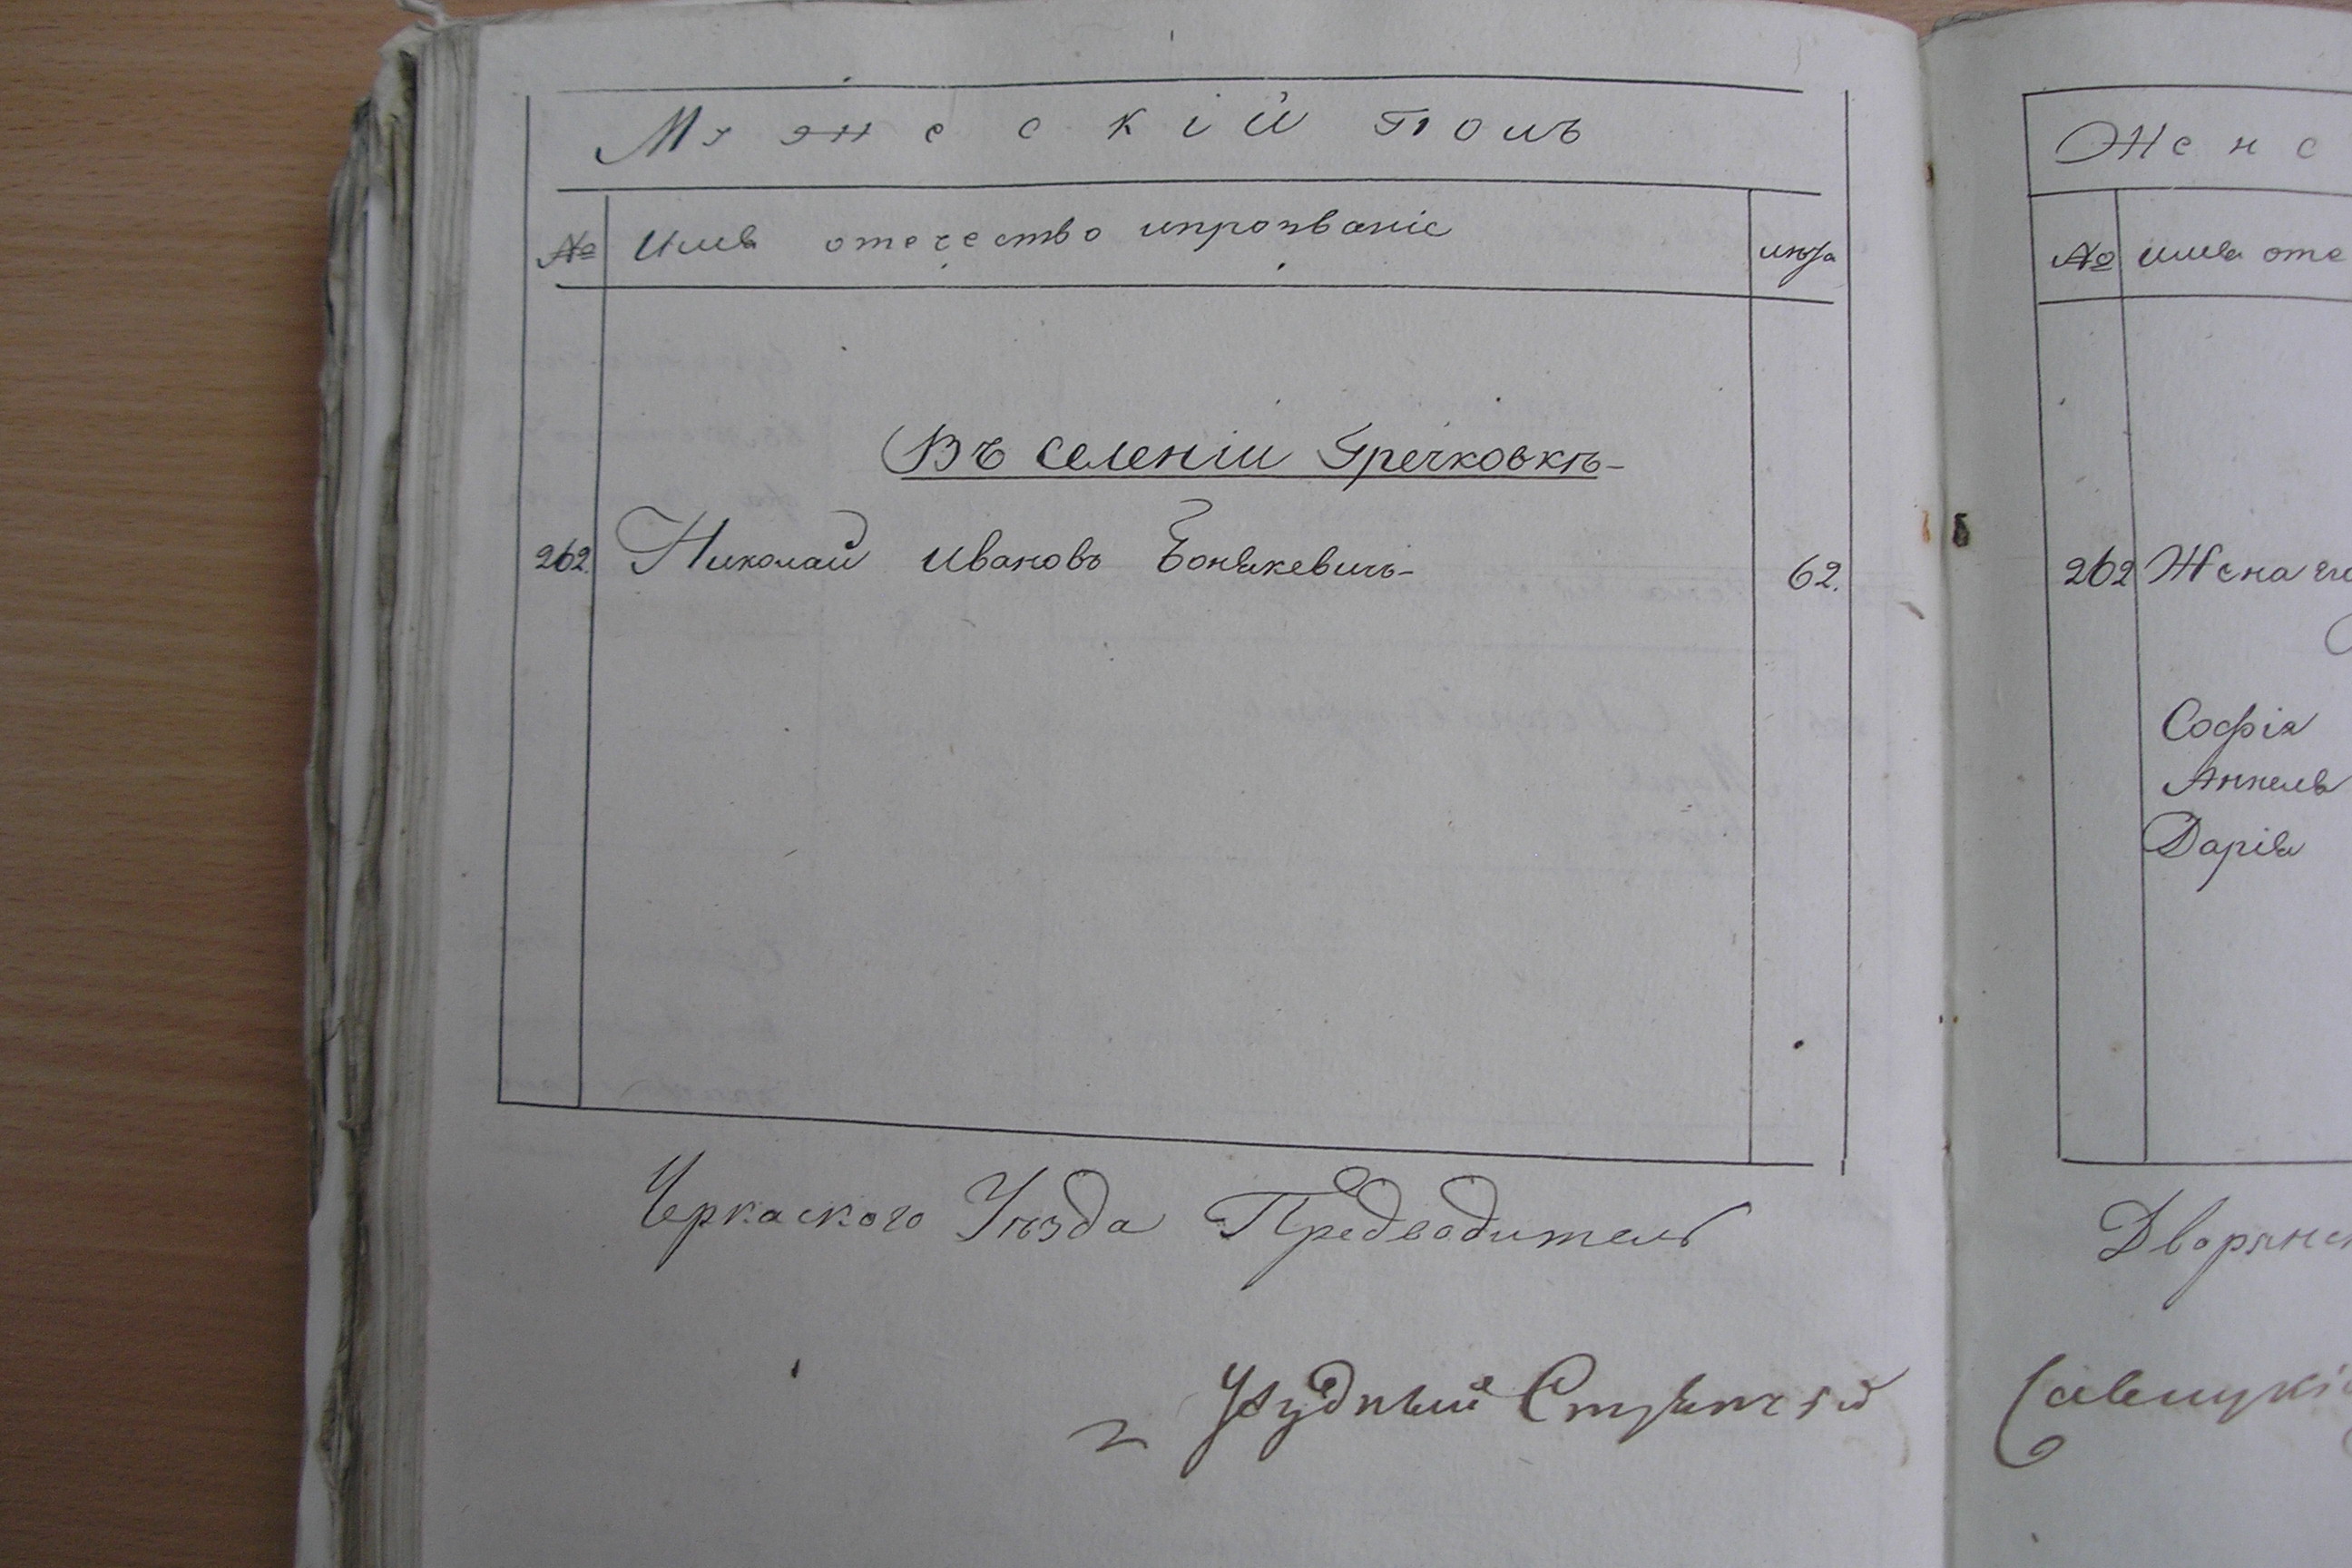 Мужескій полъ
№ Имя отечество ипрозваніе лѣта
Въ селеніи Гречковкѣ
262. Николай Ивановъ Бонякевичь 62.
Черкаского Уѣзда Предводитель
Женс
№ имя оте
262 Жена ег
Софія
Анкеля
Дарія
Дворянс